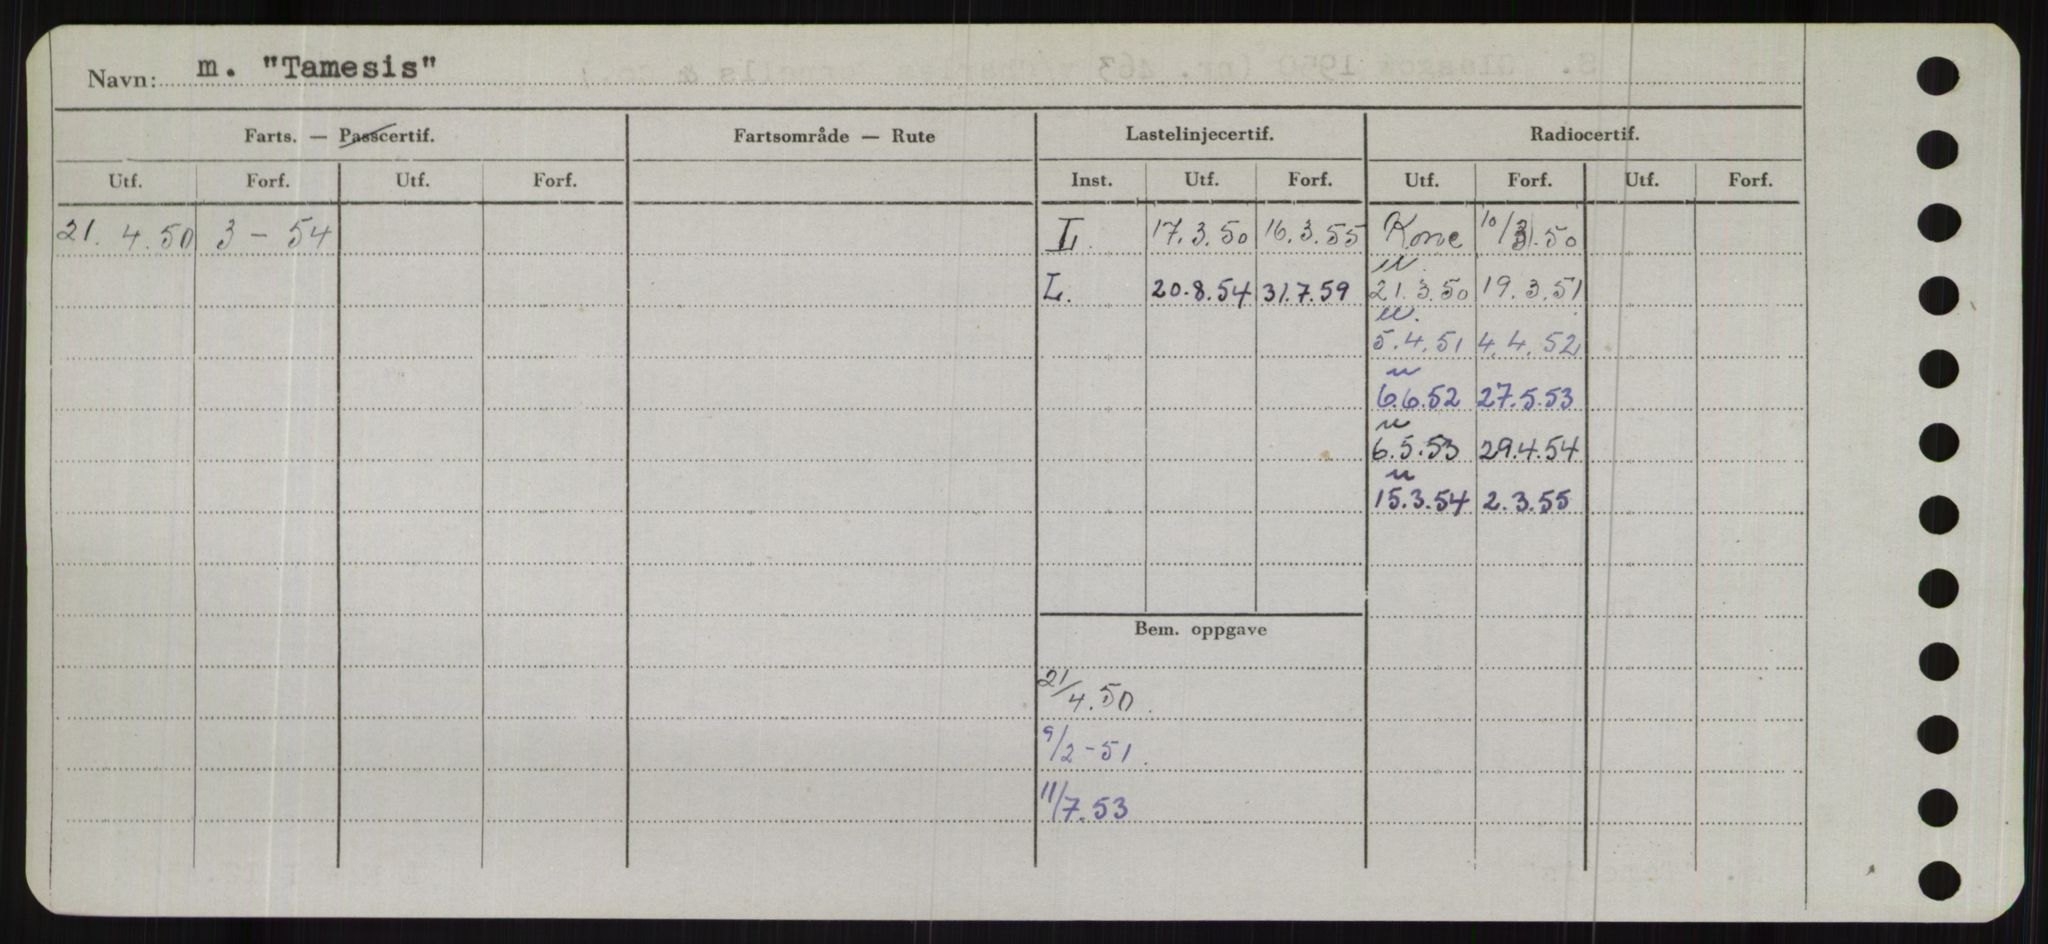 Navn: m. "Tamesis"
Farts. — Passcertif. Fartsområde — Rute Lastelinjecertif. Radiocertif.
Utf. Forf. Utf. Forf. Inst. Utf. Forf. Utf. Forf. Utf. Forf.
21. 4. 50 3 - 54 L. 17.3.50 16.3.55 10/3.50
L. 20.8.54 31.7.59 21.3.50 19.3.51
5.4.51 4.4.52
6.6.52 27.5.53
6.5.53 29.4.54
15.3.54 2.3.55
Bem. oppgave
21/4.50.
9/2-51.
11/7.53